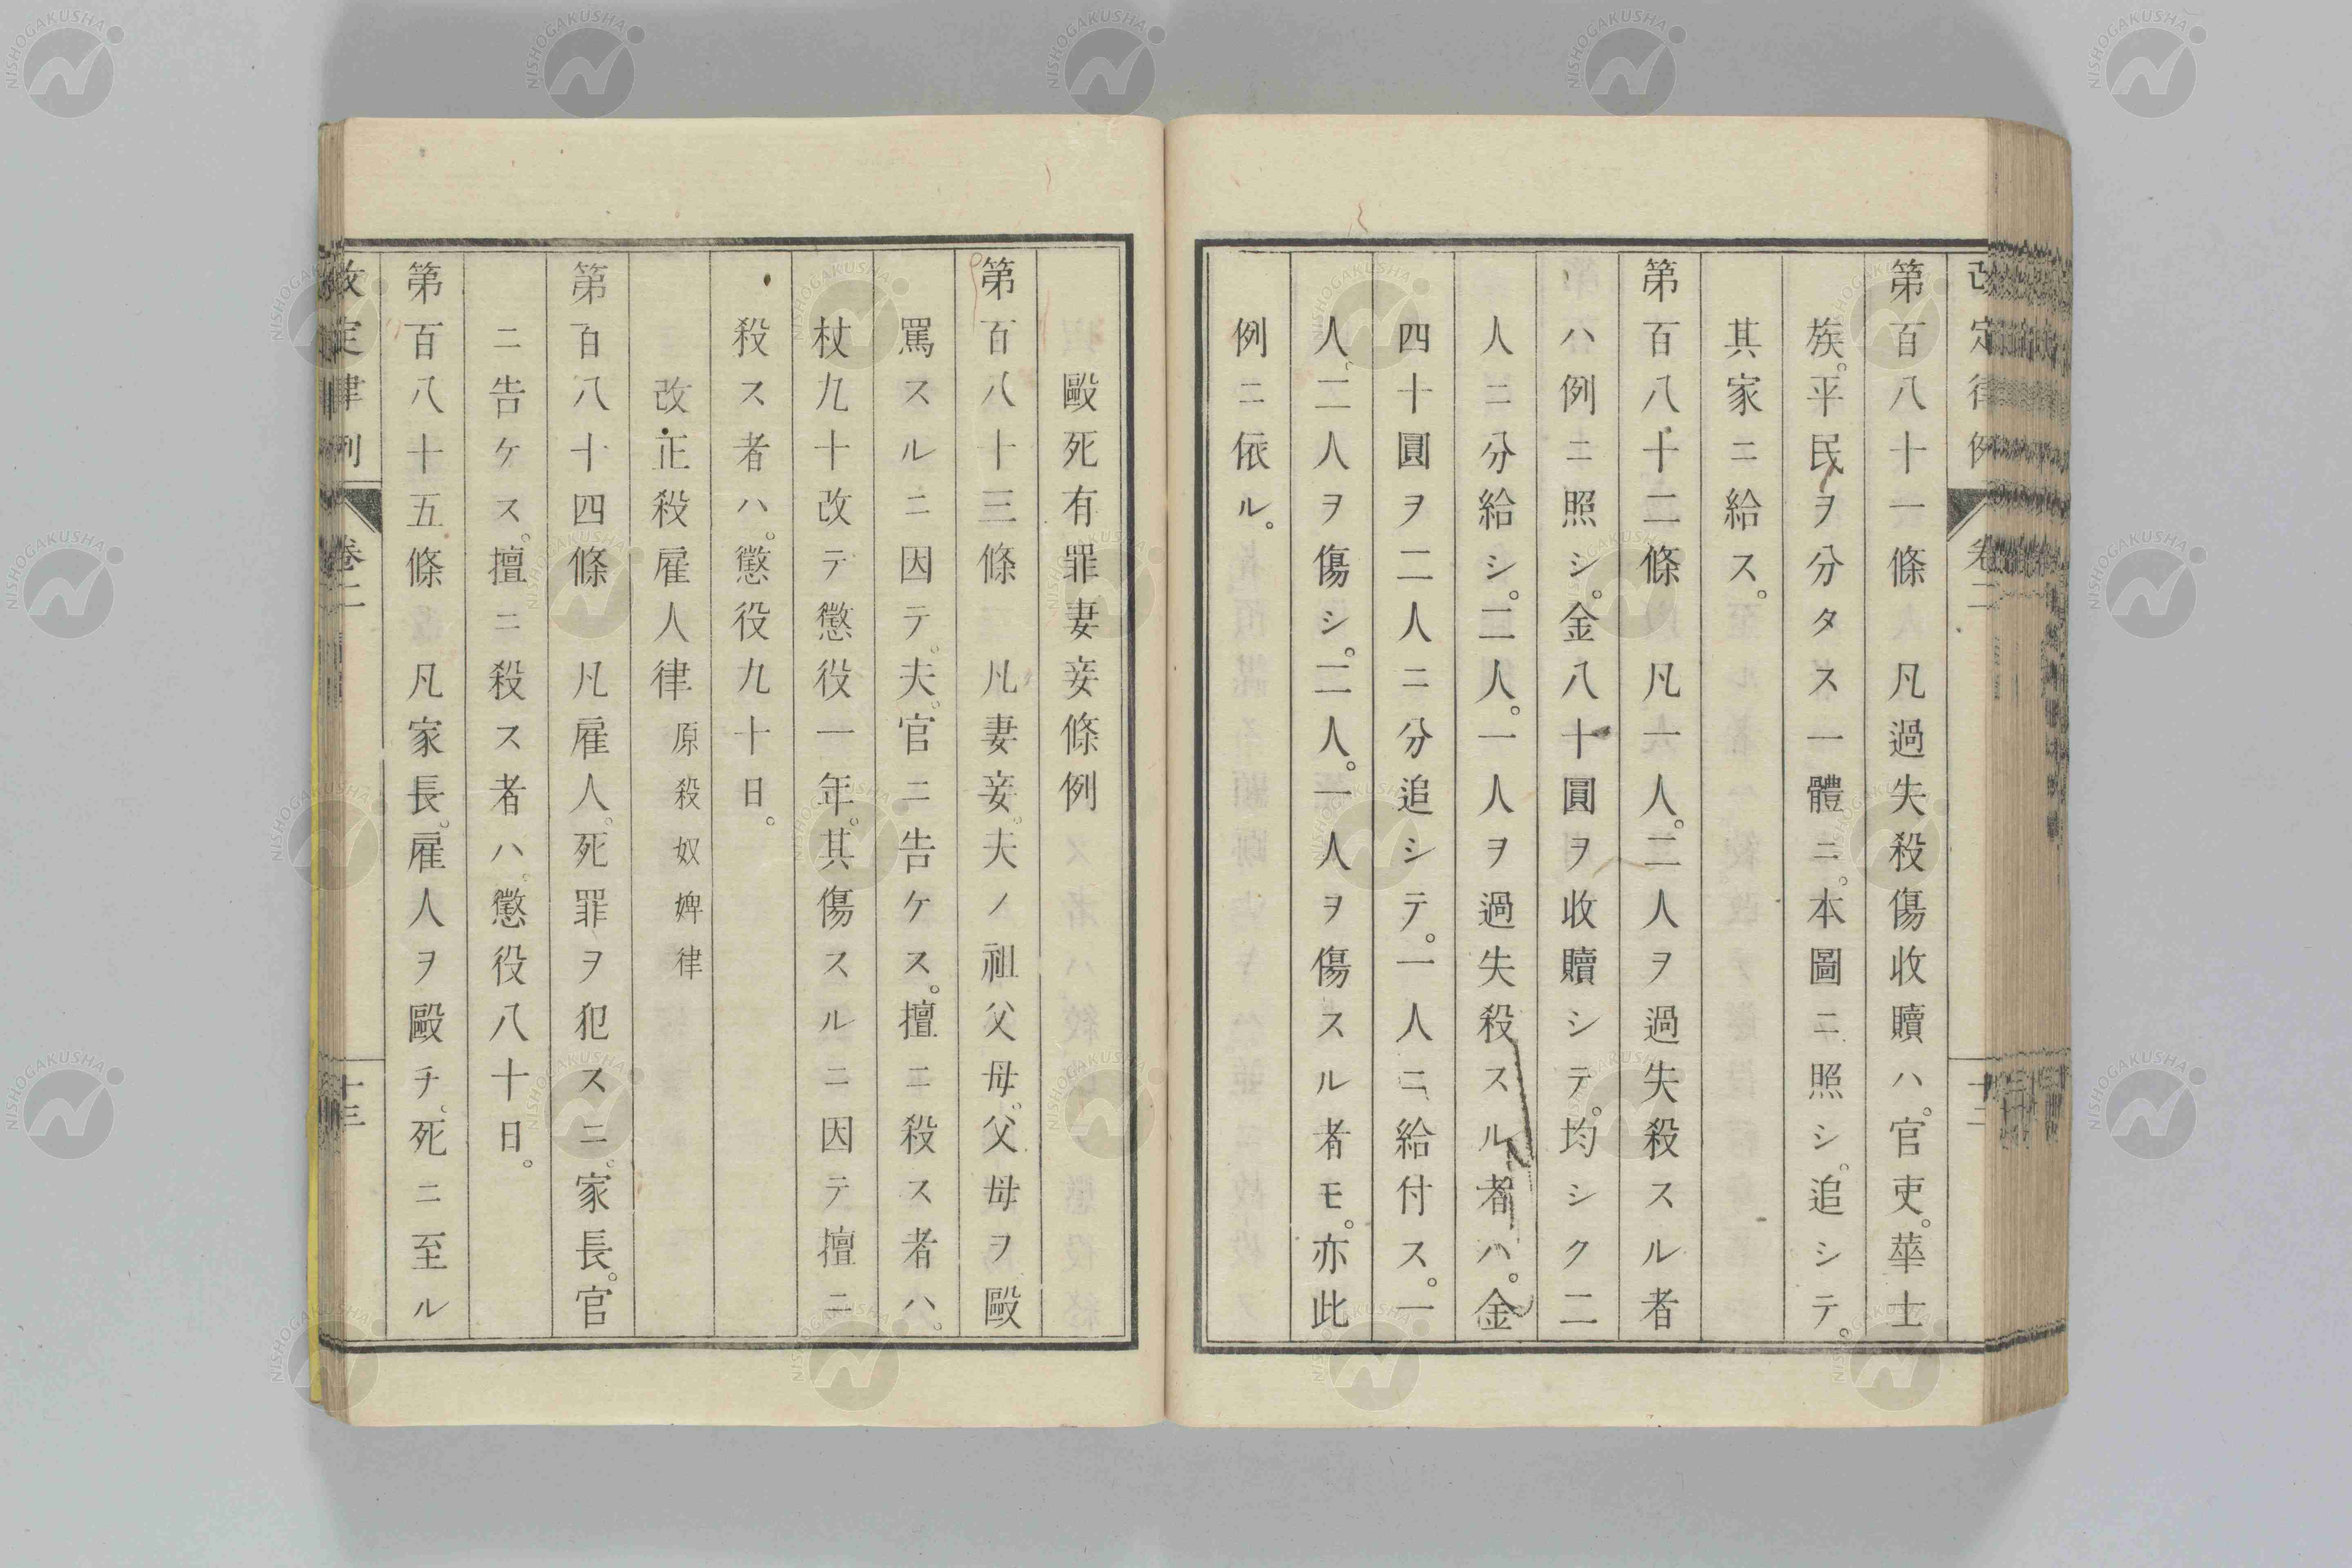 改定律例 卷二 十二
第百八十一條　凡過失殺傷收贖ハ。官吏。華士
族。平民ヲ分タス一體ニ。本圖ニ照シ。追シテ。
其家ニ給ス。
第百八十二條　凡一人。二人ヲ過失殺スル者
ハ例ニ照シ。金八十圓ヲ收贖シテ。均シク二
人ニ分給シ。二人。一人ヲ過失殺スル者ハ。金
四十圓ヲ二人ニ分追シテ。一人ニ給付ス。一
人。二人ヲ傷シ。二人。一人ヲ傷スル者モ。亦此
例ニ依ル。
毆死有罪妻妾條例
第百八十三條　凡妻妾。夫ノ祖父母。父母ヲ毆
罵スルニ因テ。夫。官ニ告ケス。擅ニ殺ス者ハ。
杖九十改テ懲役一年。其傷スルニ因テ擅ニ
殺ス者ハ。懲役九十日。
改正殺雇人律 原殺奴婢律
第百八十四條　凡雇人。死罪ヲ犯スニ。家長。官
ニ告ケス。擅ニ殺ス者ハ。懲役八十日。
第百八十五條　凡家長。雇人ヲ毆チ。死ニ至ル
改定律例 卷二 十三
NISHOGAKUSHA